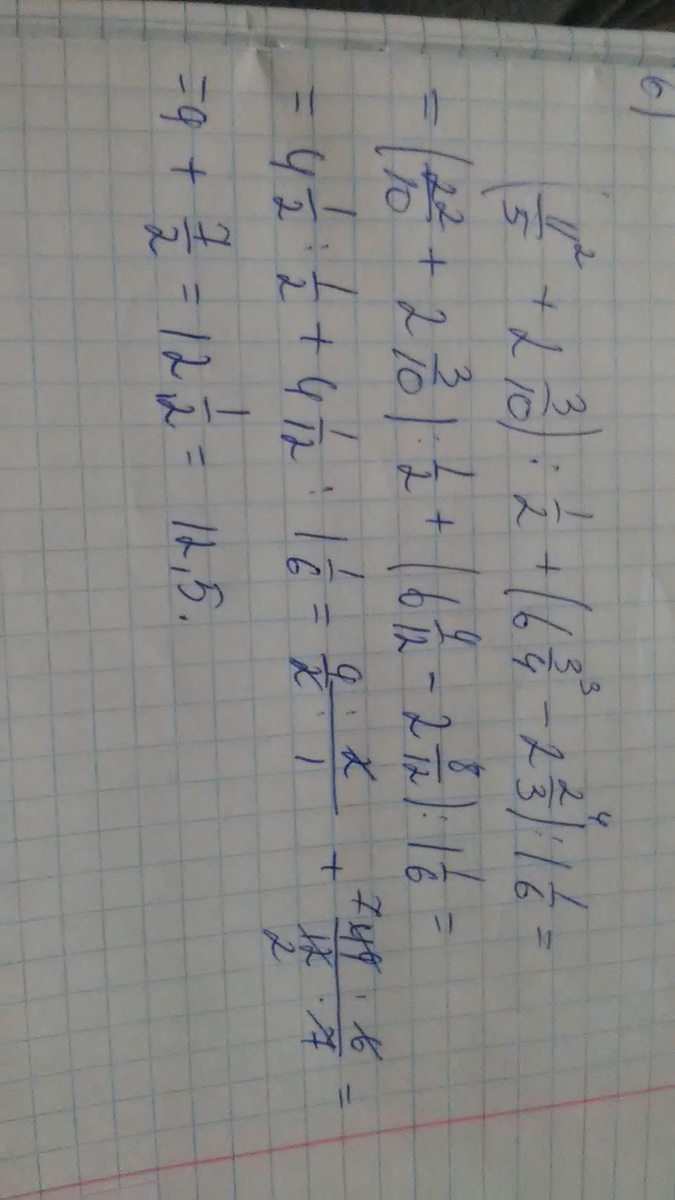 б)
(11/5² + 2 3/10) : 1/2 + (6 3/4³ - 2 2/3⁴) : 1 1/6 =
= (22/10 + 2 3/10) : 1/2 + (6 9/12 - 2 8/12) : 1 1/6 =
= 4 1/2 : 1/2 + 4 1/12 : 1 1/6 = (9 · 2)/(2 · 1) + (49 · 6)/(12 · 7) =
7
2
= 9 + 7/2 = 12 1/2 = 12,5.